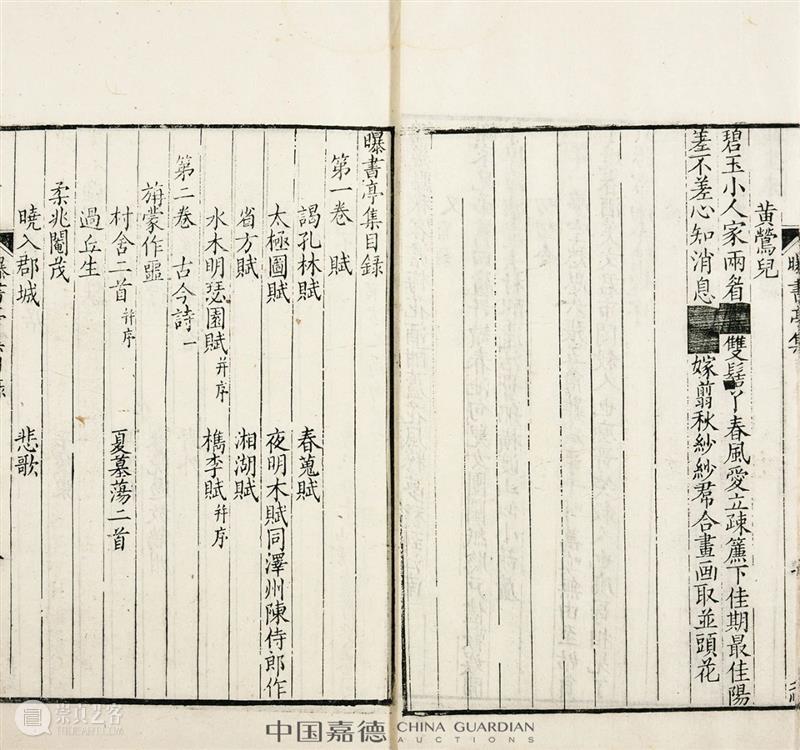 曝書亭集
黃鶯兒
碧玉小人家兩雙髻丫春風愛立疎簾下佳期最佳陽
差不差心知消息嫁翦秋紗紗帬合畫画取並頭花
曝書亭集目録
第一卷 賦
謁孔林賦 春蒐賦
太極圖賦 夜明木賦同澤州陳侍郎作
省方賦 湘湖賦
水木明瑟園賦并序 檇李賦并序
第二卷 古今詩一
旃蒙作噩
村舍二首并序 夏墓蕩二首
過丘生
柔兆閹茂
曉入郡城 悲歌
崇真艺客
中国嘉德 CHINA GUARDIAN
AUCTIONS